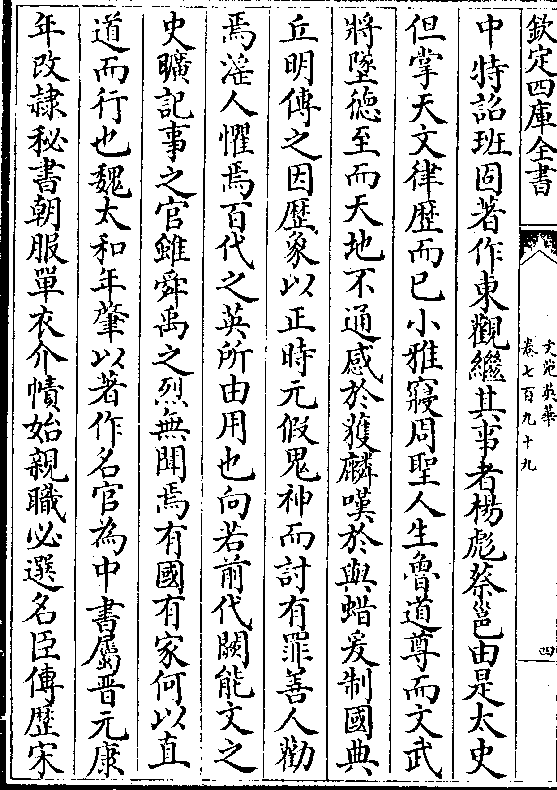 欽定四庫全書
文苑英華
卷七百九十九
四
中特詔班固著作東觀繼其事者楊彪蔡邕由是太史
但掌天文律歴而已小雅寖周聖人生魯道尊而文武
將墜德至而天地不通感於獲麟嘆於與蜡爰制國典
丘明傳之因歴象以正時元假鬼神而討有罪善人勸
焉淫人懼焉百代之英所由用也向若前代闕能文之
史曠記事之官雖舜禹之烈無聞焉有國有家何以直
道而行也魏太和年肇以著作名官為中書屬晉元康
年改隷秘書朝服單衣介幘始親職必選名臣傳歴宋